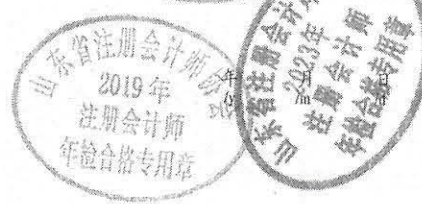 山东省注册会计师协会
2019年
注册会计师
年检合格专用章
年 月 日
山东省注册会计师
2023年
注册会计师
年检合格专用章